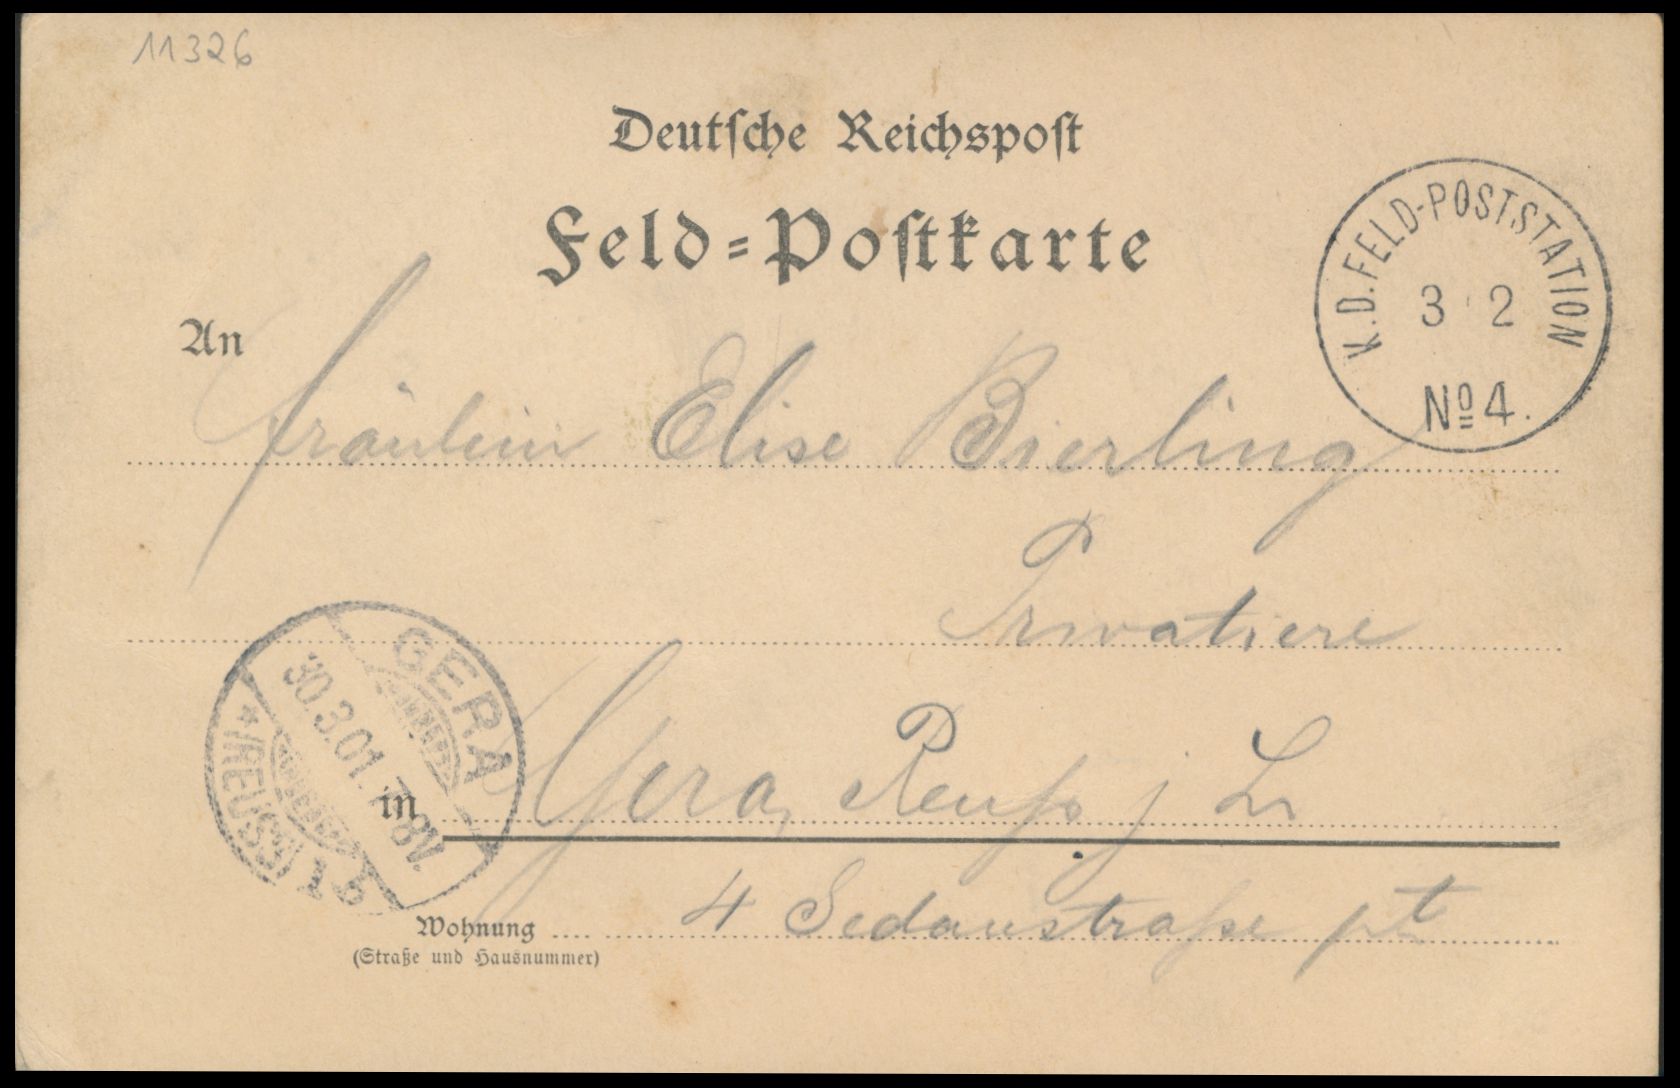 11326
Deutsche Reichspost
Feld-Postkarte
K.D.FELD-POSTSTATION
3 2
№ 4.
An
Fräulein Elise Bierling
Privatiere
GERA
30.3.01. 7-8V.
* (REUSS) 1 b
in Gera, Reuß j L
Wohnung 4 Sedanstraße pt
(Straße und Hausnummer)